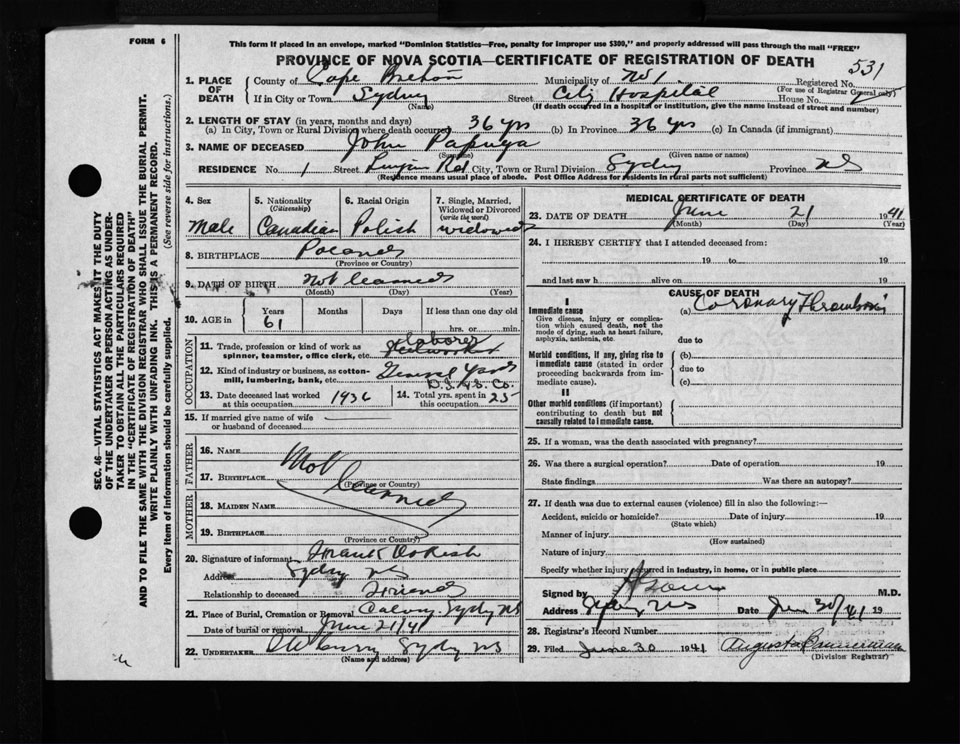 FORM 6
This form if placed in an envelope, marked "Dominion Statistics—Free, penalty for improper use $300," and properly addressed will pass through the mail "FREE"
PROVINCE OF NOVA SCOTIA—CERTIFICATE OF REGISTRATION OF DEATH
531
1. PLACE OF DEATH
County of Cape Breton Municipality of No 1. Registered No.
(For use of Registrar General only)
If in City or Town Sydney Street City Hospital House No.
(Name) (If death occurred in a hospital or institution, give the name instead of street and number)
2. LENGTH OF STAY (in years, months and days)
(a) In City, Town or Rural Division where death occurred 36 yrs (b) In Province 36 yrs (c) In Canada (if immigrant)
3. NAME OF DECEASED John
(Surname) (Given name or names)
RESIDENCE No. 1 Street Rd City, Town or Rural Division Sydney Province NS
(Residence means usual place of abode. Post Office Address for residents in rural parts not sufficient)
4. Sex
Male
5. Nationality (Citizenship)
Canadian
6. Racial Origin
Polish
7. Single, Married, Widowed or Divorced (write the word)
widowed
8. BIRTHPLACE Poland
(Province or Country)
9. DATE OF BIRTH not learned
(Month) (Day) (Year)
10. AGE in Years Months Days If less than one day old
61 hrs. or min.
OCCUPATION
11. Trade, profession or kind of work as spinner, teamster, office clerk, etc. Laborer Steelworker
12. Kind of industry or business, as cotton-mill, lumbering, bank, etc. General Yards D.I.&S. Co.
13. Date deceased last worked at this occupation 1936
14. Total yrs. spent in this occupation 25
15. If married give name of wife or husband of deceased
FATHER
16. NAME
17. BIRTHPLACE
(Province or Country)
Not learned
MOTHER
18. MAIDEN NAME
19. BIRTHPLACE
(Province or Country)
20. Signature of informant Frank
Address Sydney NS
Relationship to deceased Friend
21. Place of Burial, Cremation or Removal Calvary Sydney NS
Date of burial or removal June 21/41
22. UNDERTAKER Sydney NS
(Name and address)
MEDICAL CERTIFICATE OF DEATH
23. DATE OF DEATH June 21 1941
(Month) (Day) (Year)
24. I HEREBY CERTIFY that I attended deceased from:
19 to 19
and last saw h alive on 19
CAUSE OF DEATH
I
Immediate cause
Give disease, injury or complication which caused death, not the mode of dying, such as heart failure, asphyxia, asthenia, etc.
(a) Coronary Thrombosis
due to
Morbid conditions, if any, giving rise to immediate cause (stated in order proceeding backwards from immediate cause).
(b)
due to
(c)
II
Other morbid conditions (if important) contributing to death but not causally related to immediate cause.
25. If a woman, was the death associated with pregnancy?
26. Was there a surgical operation? Date of operation 19
State findings Was there an autopsy?
27. If death was due to external causes (violence) fill in also the following:—
Accident, suicide or homicide? Date of injury 19
(State which)
Manner of injury
(How sustained)
Nature of injury
Specify whether injury occurred in industry, in home, or in public place
Signed by M.D.
Address Sydney NS Date June 30/41 19
28. Registrar's Record Number
29. Filed June 30 1941 Augusta
(Division Registrar)
SEC. 46—VITAL STATISTICS ACT MAKES IT THE DUTY OF THE UNDERTAKER OR PERSON ACTING AS UNDERTAKER TO OBTAIN ALL THE PARTICULARS REQUIRED IN THE "CERTIFICATE OF REGISTRATION OF DEATH"
AND TO FILE THE SAME WITH THE DIVISION REGISTRAR WHO SHALL ISSUE THE BURIAL PERMIT.
WRITE PLAINLY WITH UNFADING INK. THIS IS A PERMANENT RECORD.
Every item of information should be carefully supplied. (See reverse side for instructions.)